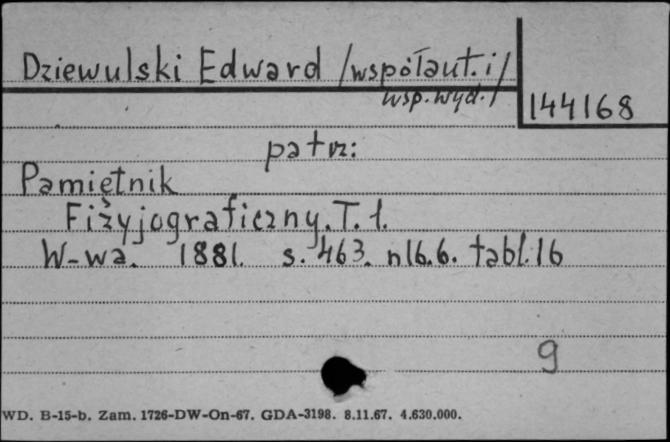 Dziewulski Edward /współaut. i/
wsp. wyd./
144168
patrz:
Pamiętnik
Fizyjograficzny. T. 1.
W-wa. 1881. s. 463. nlb. 6. tabl. 16
9
WD. B-15-b. Zam. 1726-DW-On-67. GDA-3198. 8.11.67. 4.630.000.